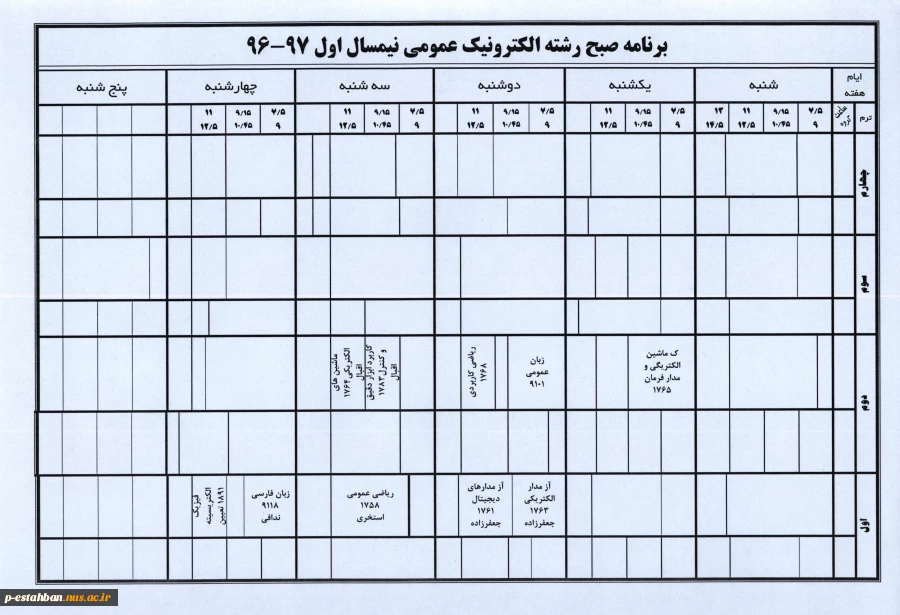 برنامه صبح رشته الکترونیک عمومی نیمسال اول ۹۷-۹۶
ایام هفته
شنبه
یکشنبه
دوشنبه
سه شنبه
چهارشنبه
پنج شنبه
ترم
۷/۵ ۹
۹/۱۵ ۱۰/۴۵
۱۱ ۱۲/۵
۱۳ ۱۴/۵
۷/۵ ۹
۹/۱۵ ۱۰/۴۵
۱۱ ۱۲/۵
۷/۵ ۹
۹/۱۵ ۱۰/۴۵
۱۱ ۱۲/۵
۷/۵ ۹
۹/۱۵ ۱۰/۴۵
۱۱ ۱۲/۵
۷/۵ ۹
۹/۱۵ ۱۰/۴۵
۱۱ ۱۲/۵
چهارم
سوم
دوم
ک ماشین
الکتریگی و
مدار فرمان
۱۷۶۵
زبان
عمومی
۹۱۰۱
ریاضی کاربردی
۱۷۶۸
کاربرد ابزار دقیق
و کنترل ۱۷۸۳
اقبال
ماشین های
الکتریکی ۱۷۶۴
اقبال
اول
آز مدار
الکتریکی
۱۷۶۳
جعفرزاده
آز مدارهای
دیجیتال
۱۷۶۱
جعفرزاده
ریاضی عمومی
۱۷۵۸
استخری
زبان فارسی
۹۱۱۸
ندافی
فیزیک
الکتریسیته
۱۸۹۱ تعیین
p-estahban.nus.ac.ir